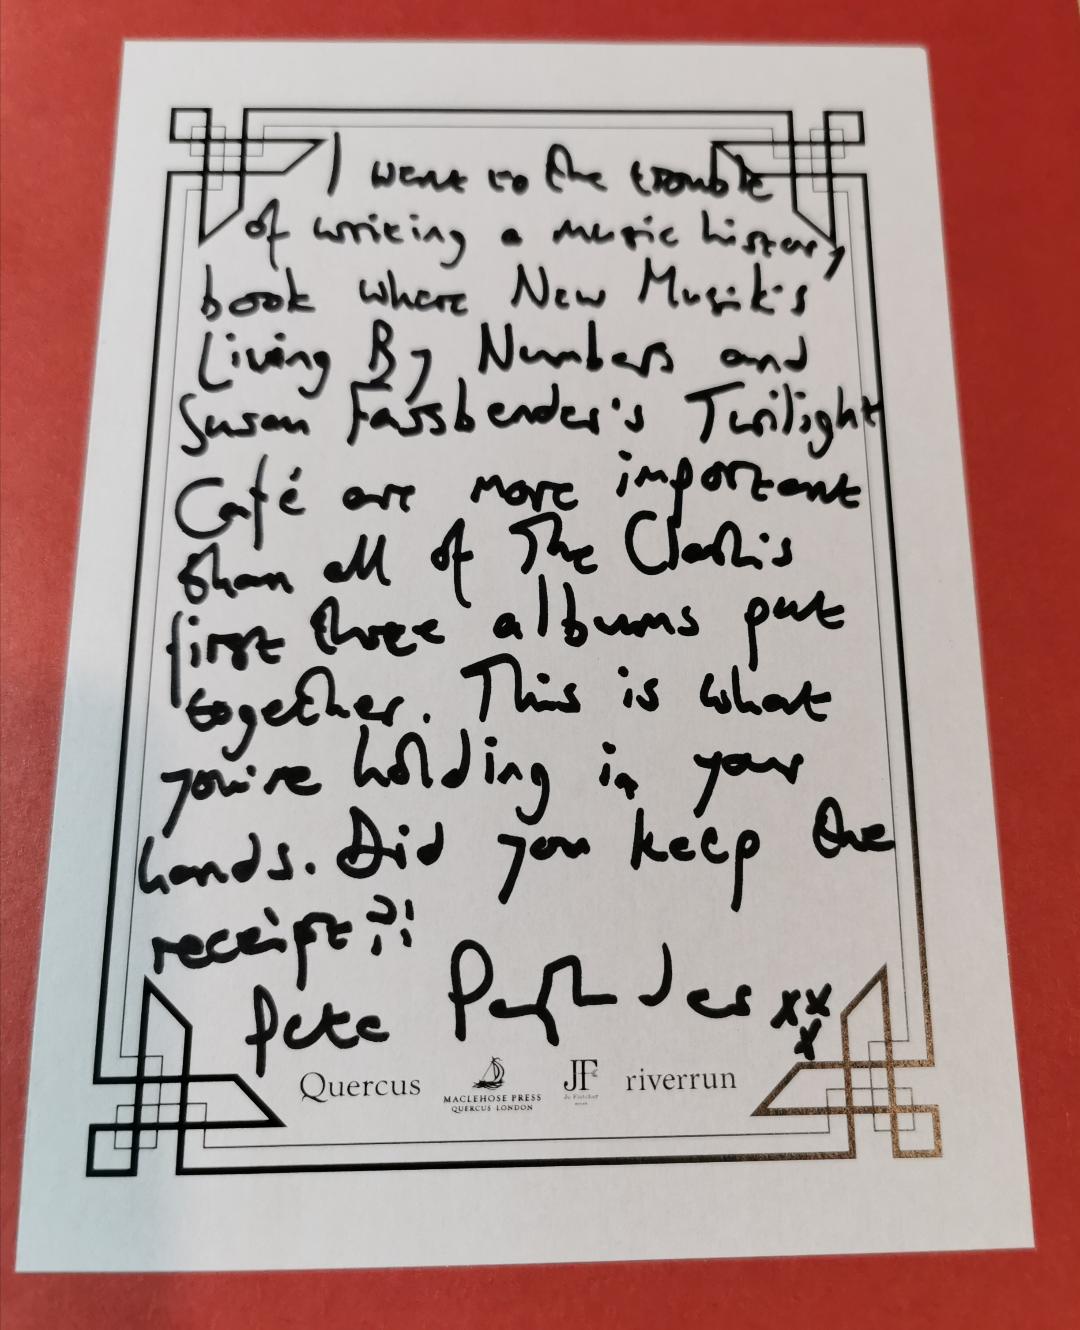 I went to the trouble
of writing a music history
book where New Musik's
Living By Numbers and
Susan Fassbender's Twilight
Café are more important
than all of The Clash's
first three albums put
together. This is what
you're holding in your
hands. Did you keep the
receipt?!
Pete Paphides xxx
Quercus
MACLEHOSE PRESS
QUERCUS · LONDON
JF
Jo Fletcher
BOOKS
riverrun